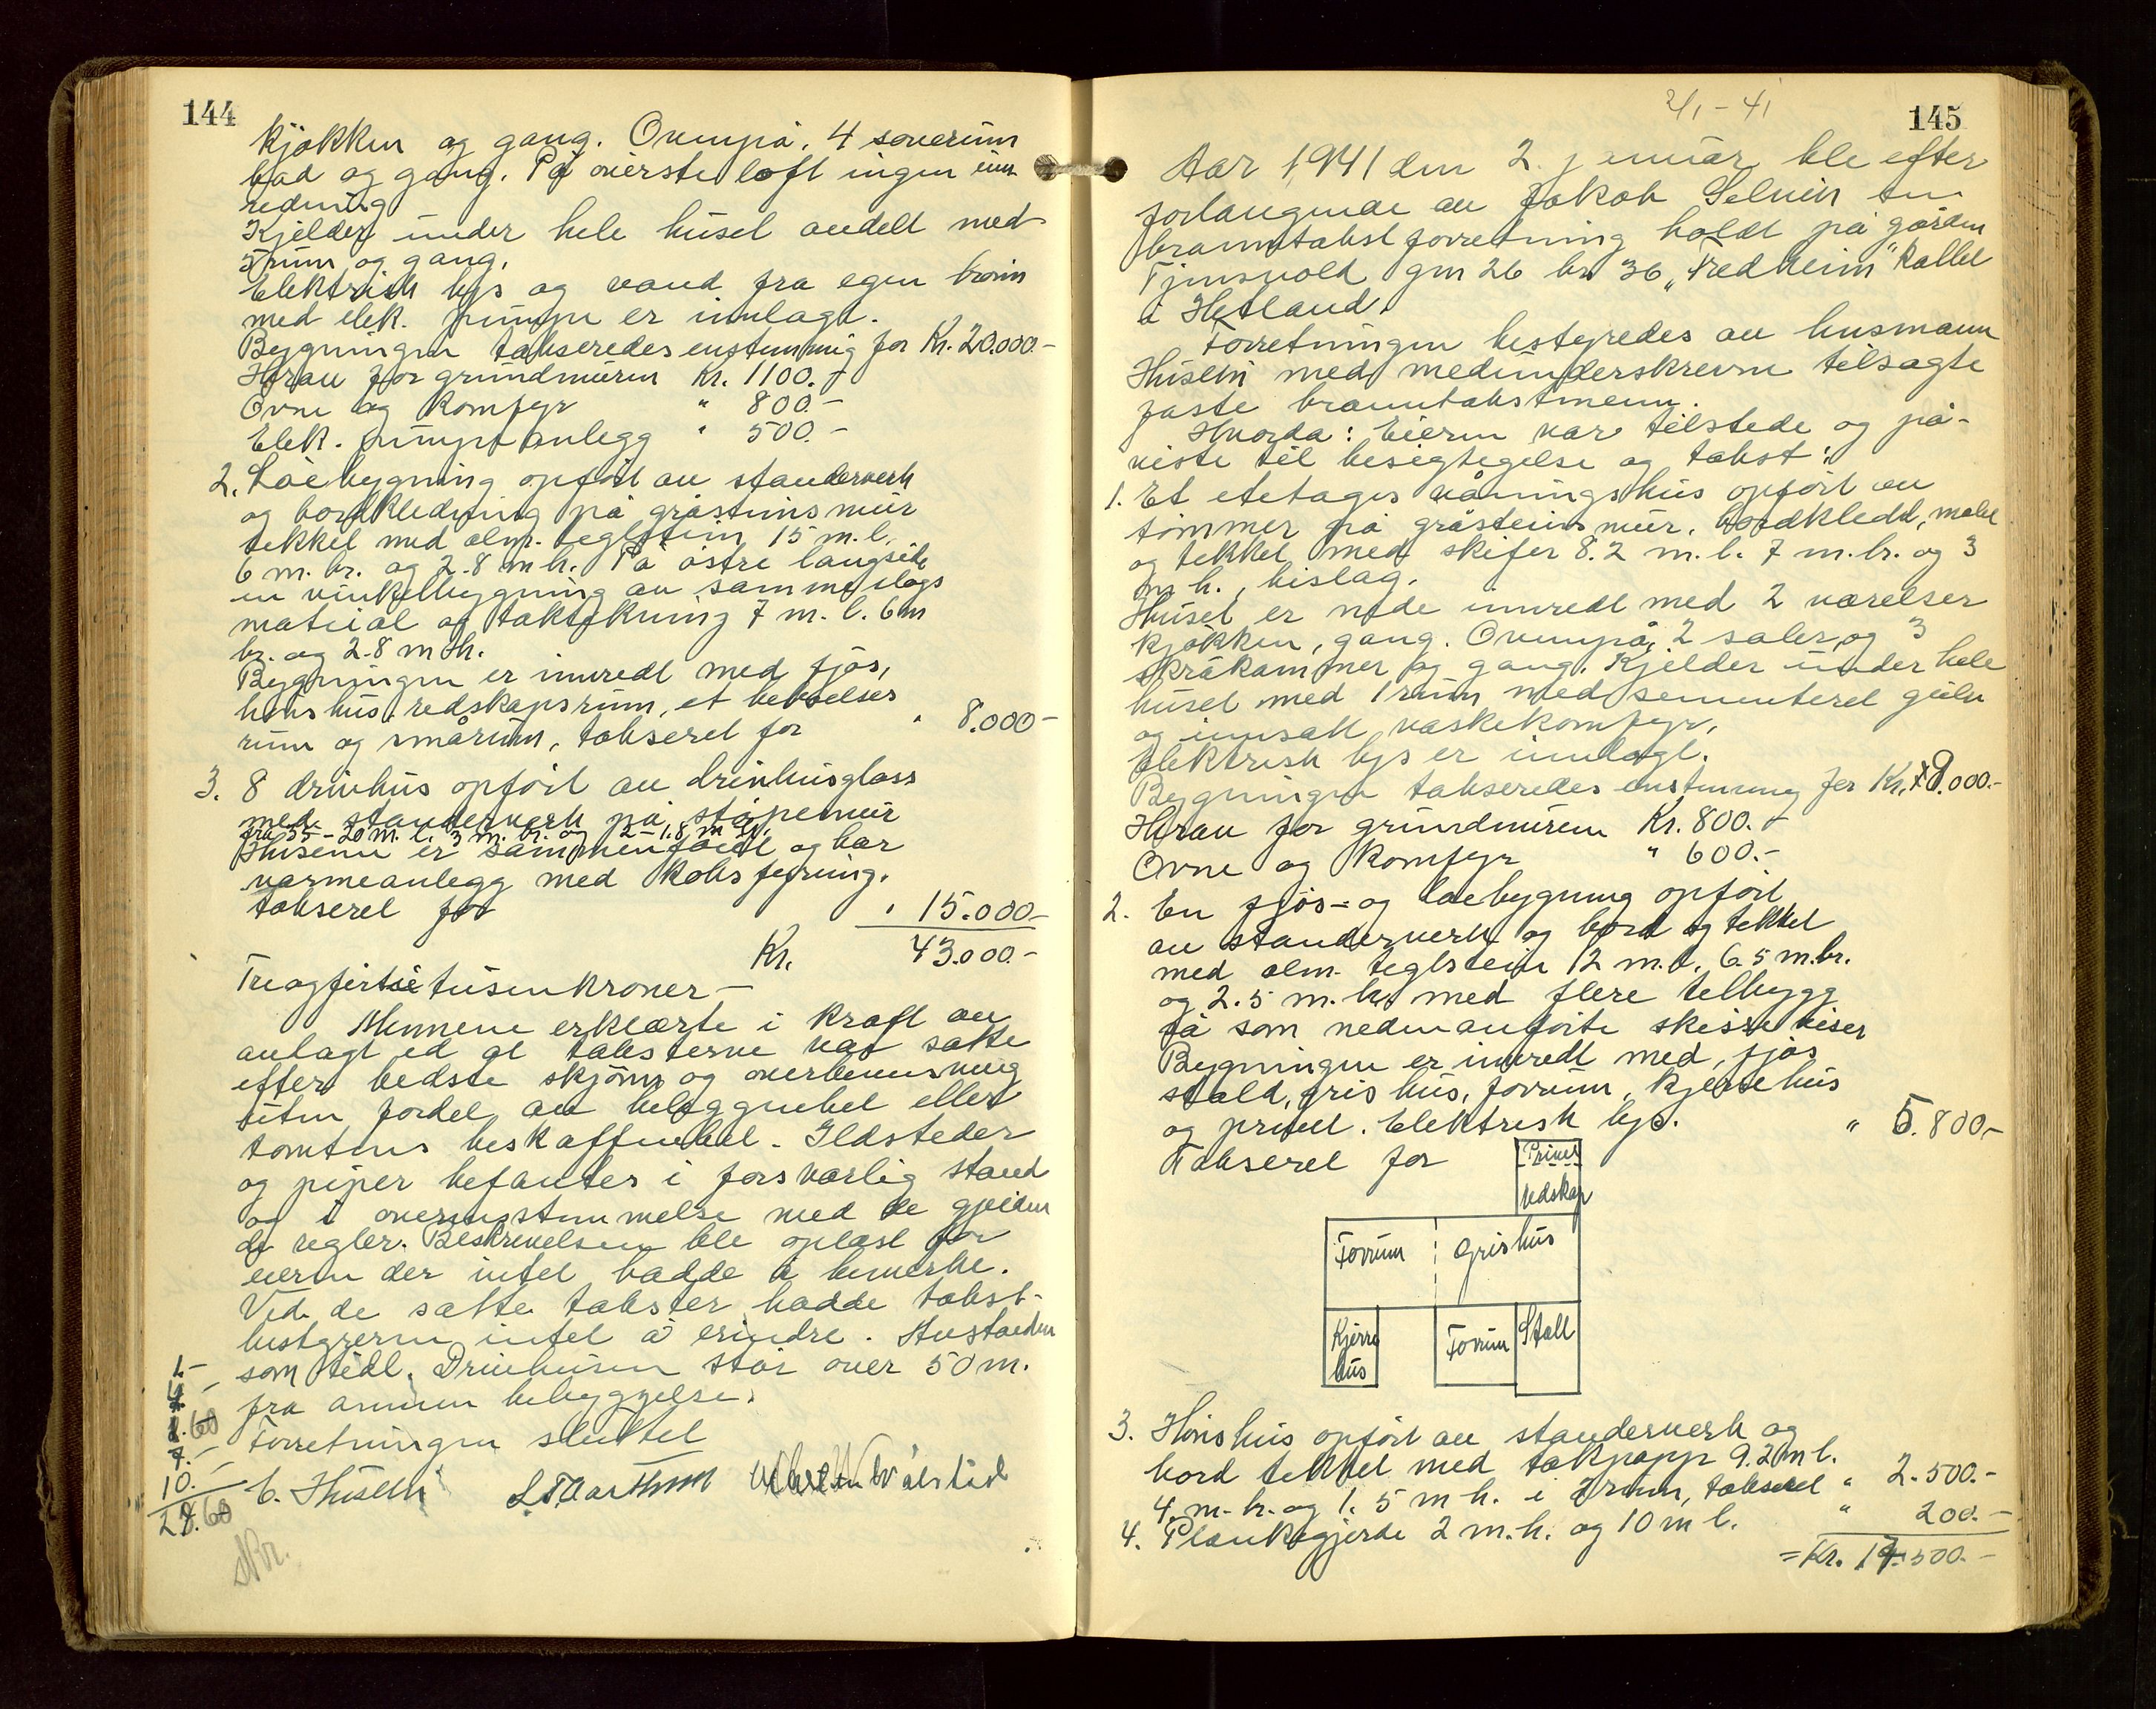 144
kjøkken og gang. Ovenpå, 4 soverum
bad og gang. På øverste loft ingen inn
redning
Kjelder under hele huset andelt med
5 rum og gang.
Elektrisk lys og vand fra egen brønn
med elek. pumpe er innlagt.
Bygningen takseredes enstemmig for Kr. 20.000.-
Herav for grundmuren Kr. 1100.-
Ovne og komfyr " 800.-
Elek. pumpeanlegg " 500.-
2. Løebygning opført av standerverk
og bordkledning på gråsteinsmur
tekket med alm. teglstein 15 m. l.
6 m. br. og 2.8 m h. På østre langside
en vinkelbygning av samme slags
material og taktekning 7 m. l. 6 m
br. og 2.8 m h.
Bygningen er innredt med fjøs,
hønshus, redskapsrum, et
rum og smårum, takseret for " 8.000-
3. 8 drivhus opført av drivhusglass
med standerverk på støpemur
fra 55 - 20 m. l. 3 m. br. og 2 - 1.8 m h.
Husene er sammenføiet og har
varmeanlegg med koksfyring.
takseret for " 15.000-
Kr. 43.000.-
Treogførtitusenkroner-
Mennene erklærte i kraft av
avlagt ed at taksterne var satte
efter bedste skjønn og overbevisning
uten fordel av beliggenhet eller
tomtens beskaffenhet. Ildsteder
og piper befantes i forsvarlig stand
og i overensstemmelse med de gjelden
de regler. Beskrivelsen ble oplæst for
eieren der intet hadde å bemerke.
Ved de satte takster hadde takst-
bestyreren intet å erindre. Avstanden
som tidl. Drivhusen står over 50 m.
fra annen bebyggelse.
Forretningen sluttet
10.-
E. Husebø
145
2/1 - 41
Aar 1941 den 2. januar ble efter
forlangende av Jakob Selvin en
branntakstforretning holdt på gården
Tjensvold gnr 26 br 36 "Fredheim" kallet
i Hetland.
Forretningen bestyredes av husmann
Husebø med medunderskrevne tilsagte
faste branntakstmenn.
Hvorda: Eieren var tilstede og på-
viste til besigtegelse og takst:
1. Et etetages våningshus opført av
tømmer på gråsteinsmur, bordkledd, malet
og tekket med skifer 8.2 m. l. 7 m. br. og 3
m h., bislag.
Huset er nede innredt med 2 værelser
kjøkken, gang. Ovenpå, 2 saler, og 3
skråkammer og gang. Kjelder under hele
huset med 1 rum med sementeret gulv
og innsatt vaskekomfyr.
Elektrisk lys er innlagt.
Bygningen takseredes enstemmig for Kr. 9.000.-
Herav for grundmuren Kr. 800.-
Ovne og komfyr " 600.-
2. En fjøs- og løebygning opført
av standerverk og bord og tekket
med alm. teglstein 12 m. l. 6.5 m. br.
og 2.5 m. h. med flere tilbygg
så som nedenanførte skisse viser
Bygningen er innredt med, fjøs
stald, grishus, forrum, kjerrehus
og privet. Elektrisk lys.
Takseret for " 5.800-
Privet
Redskap
Forrum
Grishus
Kjerre
hus
Forrum
Stall
3. Hønshus opført av standerverk og
bord tekket med takpapp 9.2 m l.
4 m. br. og 1.5 m h. i 2 rum, takseret " 2.500.-
4. Plankegjerde 2 m. h. og 10 m l. " 200.-
= Kr. 17.500.-